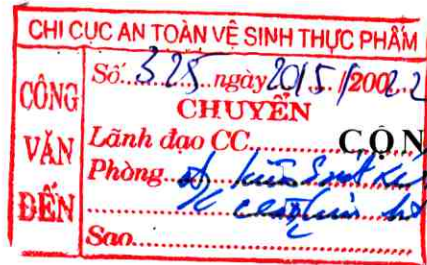 CHI CỤC AN TOÀN VỆ SINH THỰC PHẨM
CÔNG VĂN ĐẾN
Số: 325 ngày 20/5/2002.2
CHUYỂN
Lãnh đạo CC.......... CỘN
Phòng
Sao